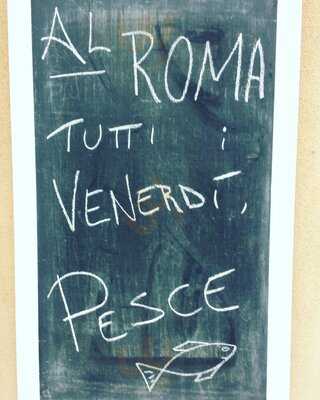 AL ROMA
TUTTI i
VENERDÌ,
PESCE